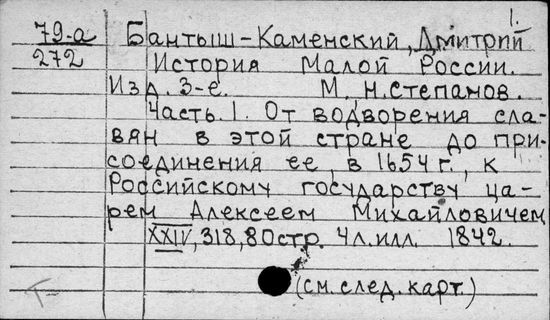 1.
79-а Бантыш-Каменский, Дмитрий
272 История Малой России.
Изд. 3-е. М., Н. Степанов.
Часть. 1. От водворения сла-
вян в этой стране до при-
соединения ее, в 1654 г., к
Российскому государству ца-
рем Алексеем Михайловичем
XXIV, 318, 80 стр. 4 л. илл. 1842.
(см. след. карт.)